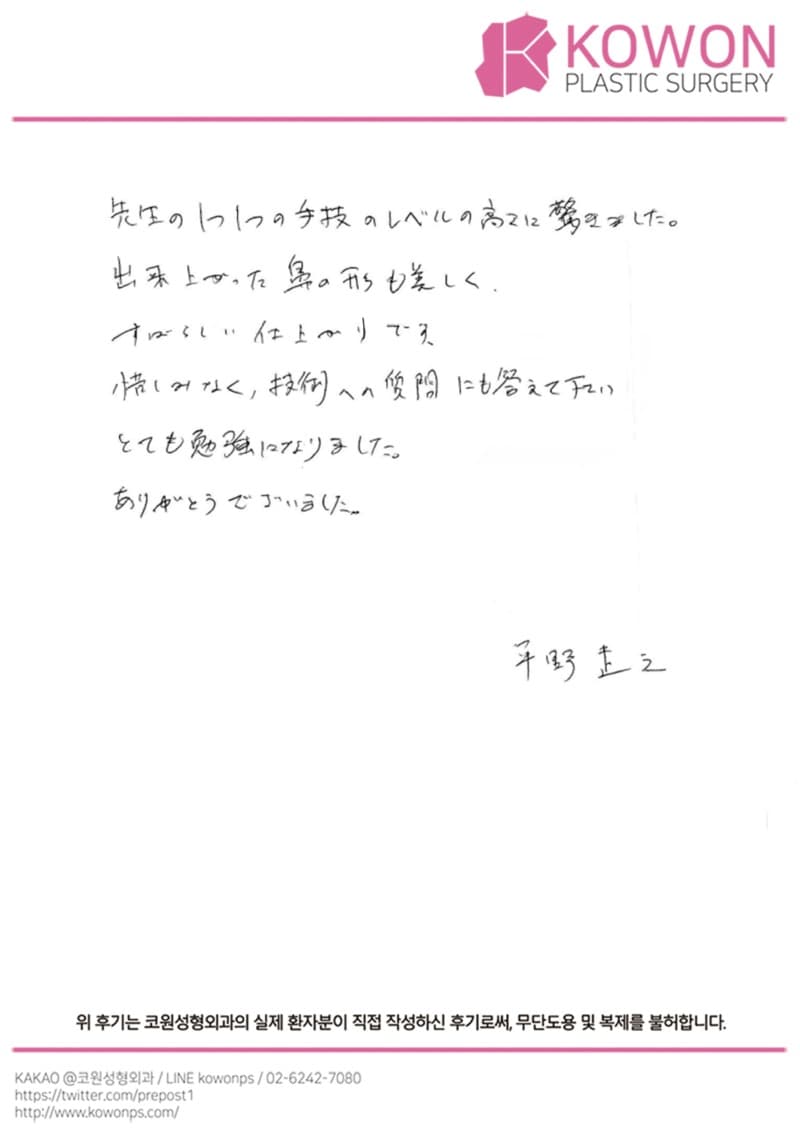 KOWON
PLASTIC SURGERY
先生の1つ1つの手技のレベルの高さに驚きました。
出来上がった鼻の形も美しく、
すばらしい仕上がりです。
惜しみなく、技術への質問にも答えて下さい
とても勉強になりました。
ありがとうございました。
平野 圭之
위 후기는 코원성형외과의 실제 환자분이 직접 작성하신 후기로써, 무단도용 및 복제를 불허합니다.
KAKAO @코원성형외과 / LINE kowonps / 02-6242-7080
https://twitter.com/prepost1
http://www.kowonps.com/